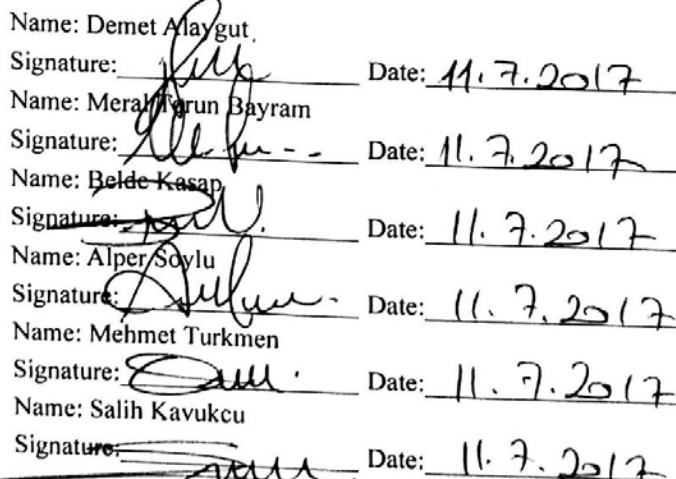 Name: Demet Alaygut
Signature: Date: 11.7.2017
Name: Meral Torun Bayram
Signature: Date: 11.7.2017
Name: Belde Kasap
Signature: Date: 11.7.2017
Name: Alper Soylu
Signature: Date: 11.7.2017
Name: Mehmet Turkmen
Signature: Date: 11.7.2017
Name: Salih Kavukcu
Signature: Date: 11.7.2017